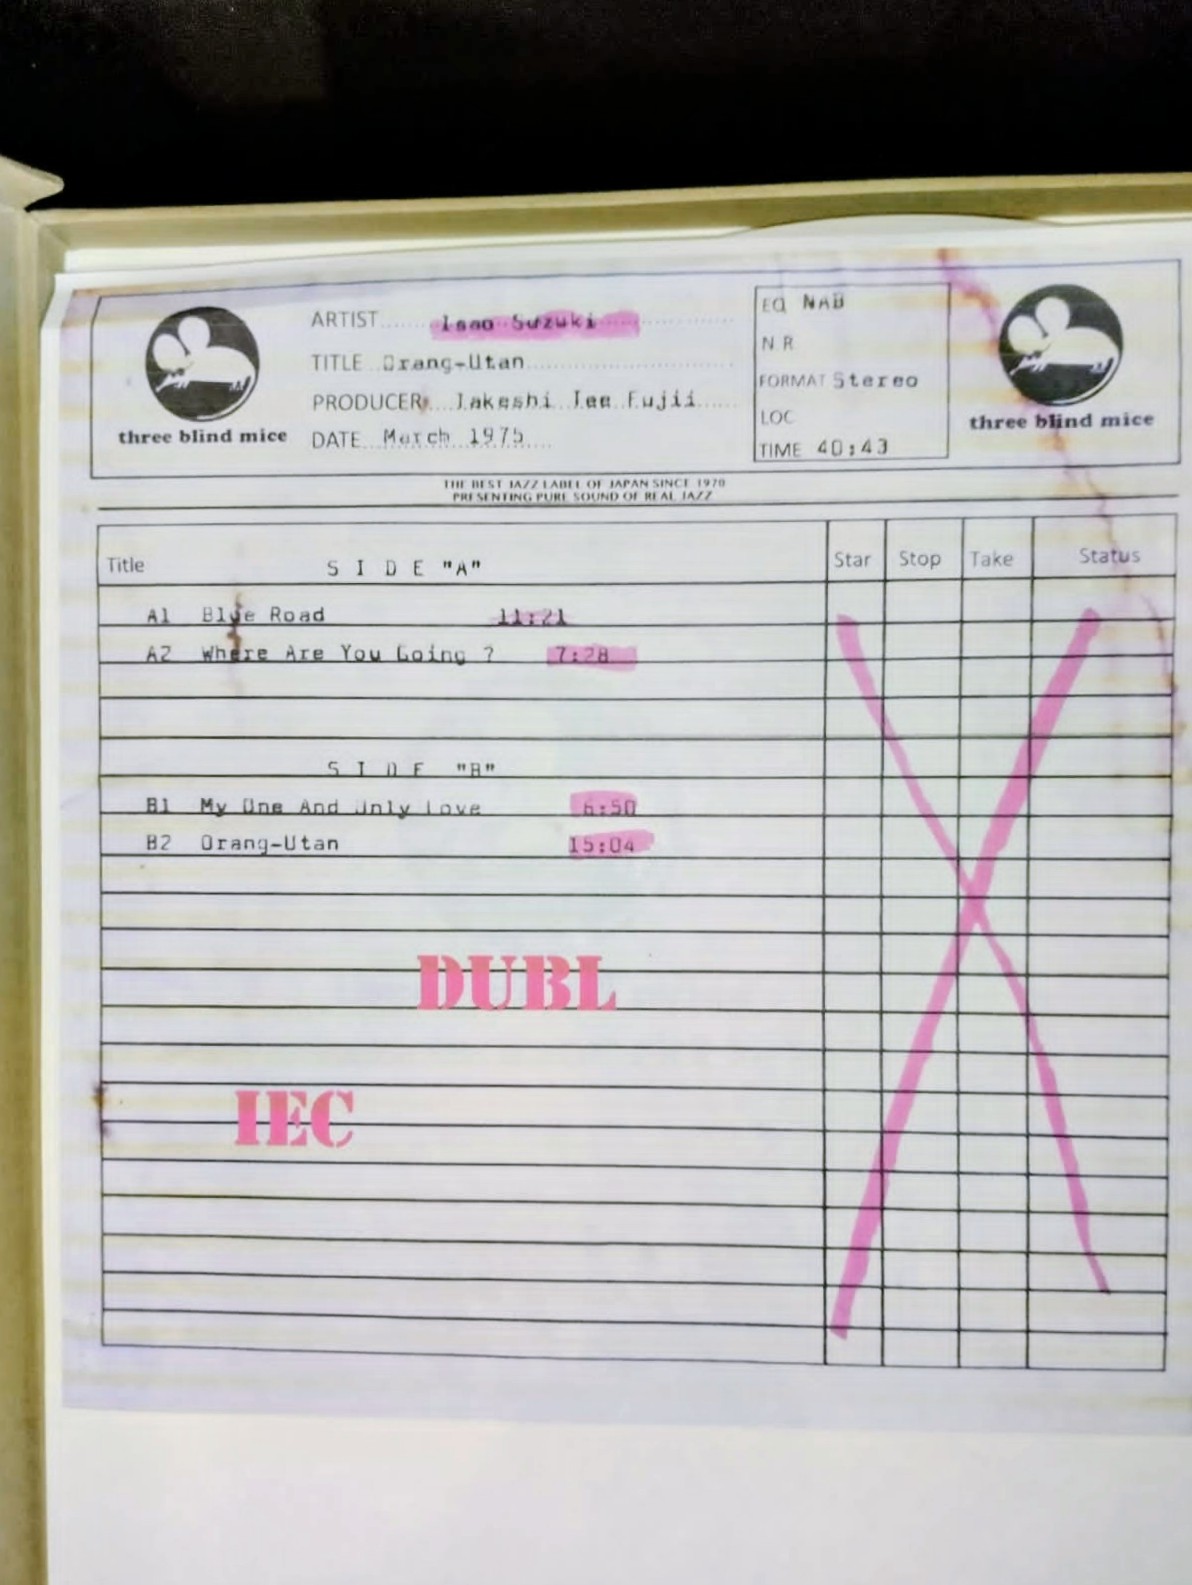 three blind mice
ARTIST Isao Suzuki
TITLE Orang-Utan
PRODUCER Takeshi Tee Fujii
DATE March 1975
EQ NAB
N R
FORMAT Stereo
LOC
TIME 40:43
three blind mice
THE BEST JAZZ LABEL OF JAPAN SINCE 1970
PRESENTING PURE SOUND OF REAL JAZZ
Title S I D E "A" Star Stop Take Status
A1 Blue Road 11:21
A2 Where Are You Going ? 7:28
S I D E "B"
B1 My One And Only Love 6:50
B2 Orang-Utan 15:04
DUBL
IEC